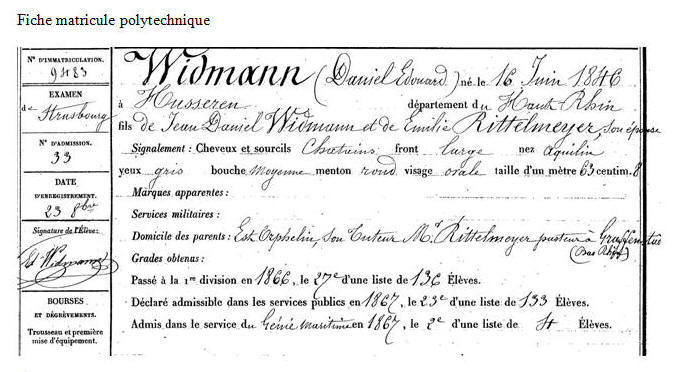 Fiche matricule polytechnique
N° D'IMMATRICULATION.
9483
EXAMEN
de Strasbourg
N° D'ADMISSION.
33
DATE
D'ENREGISTREMENT.
23 8bre
Signature de l'Élève:
Ed Widmann
BOURSES
ET DÉGRÈVEMENTS.
Trousseau et première
mise d'équipement.
Widmann (Daniel Edouard) né le 16 Juin 1846
à Husseren département du Haut Rhin
fils de Jean Daniel Widmann et de Emilie Rittelmeyer, son épouse
Signalement: Cheveux et sourcils Chatains front large nez aquilin
yeux gris bouche moyenne menton rond visage ovale taille d'un mètre 63 centim. 8
Marques apparentes:
Services militaires:
Domicile des parents: Est Orphelin, son Tuteur Mr Rittelmeyer pasteur à
(Bas Rhin)
Grades obtenus:
Passé à la 1re division en 1866, le 27e d'une liste de 136 Élèves.
Déclaré admissible dans les services publics en 1867, le 23e d'une liste de 133 Élèves.
Admis dans le service du Génie Maritime en 1867, le 2e d'une liste de 4 Élèves.